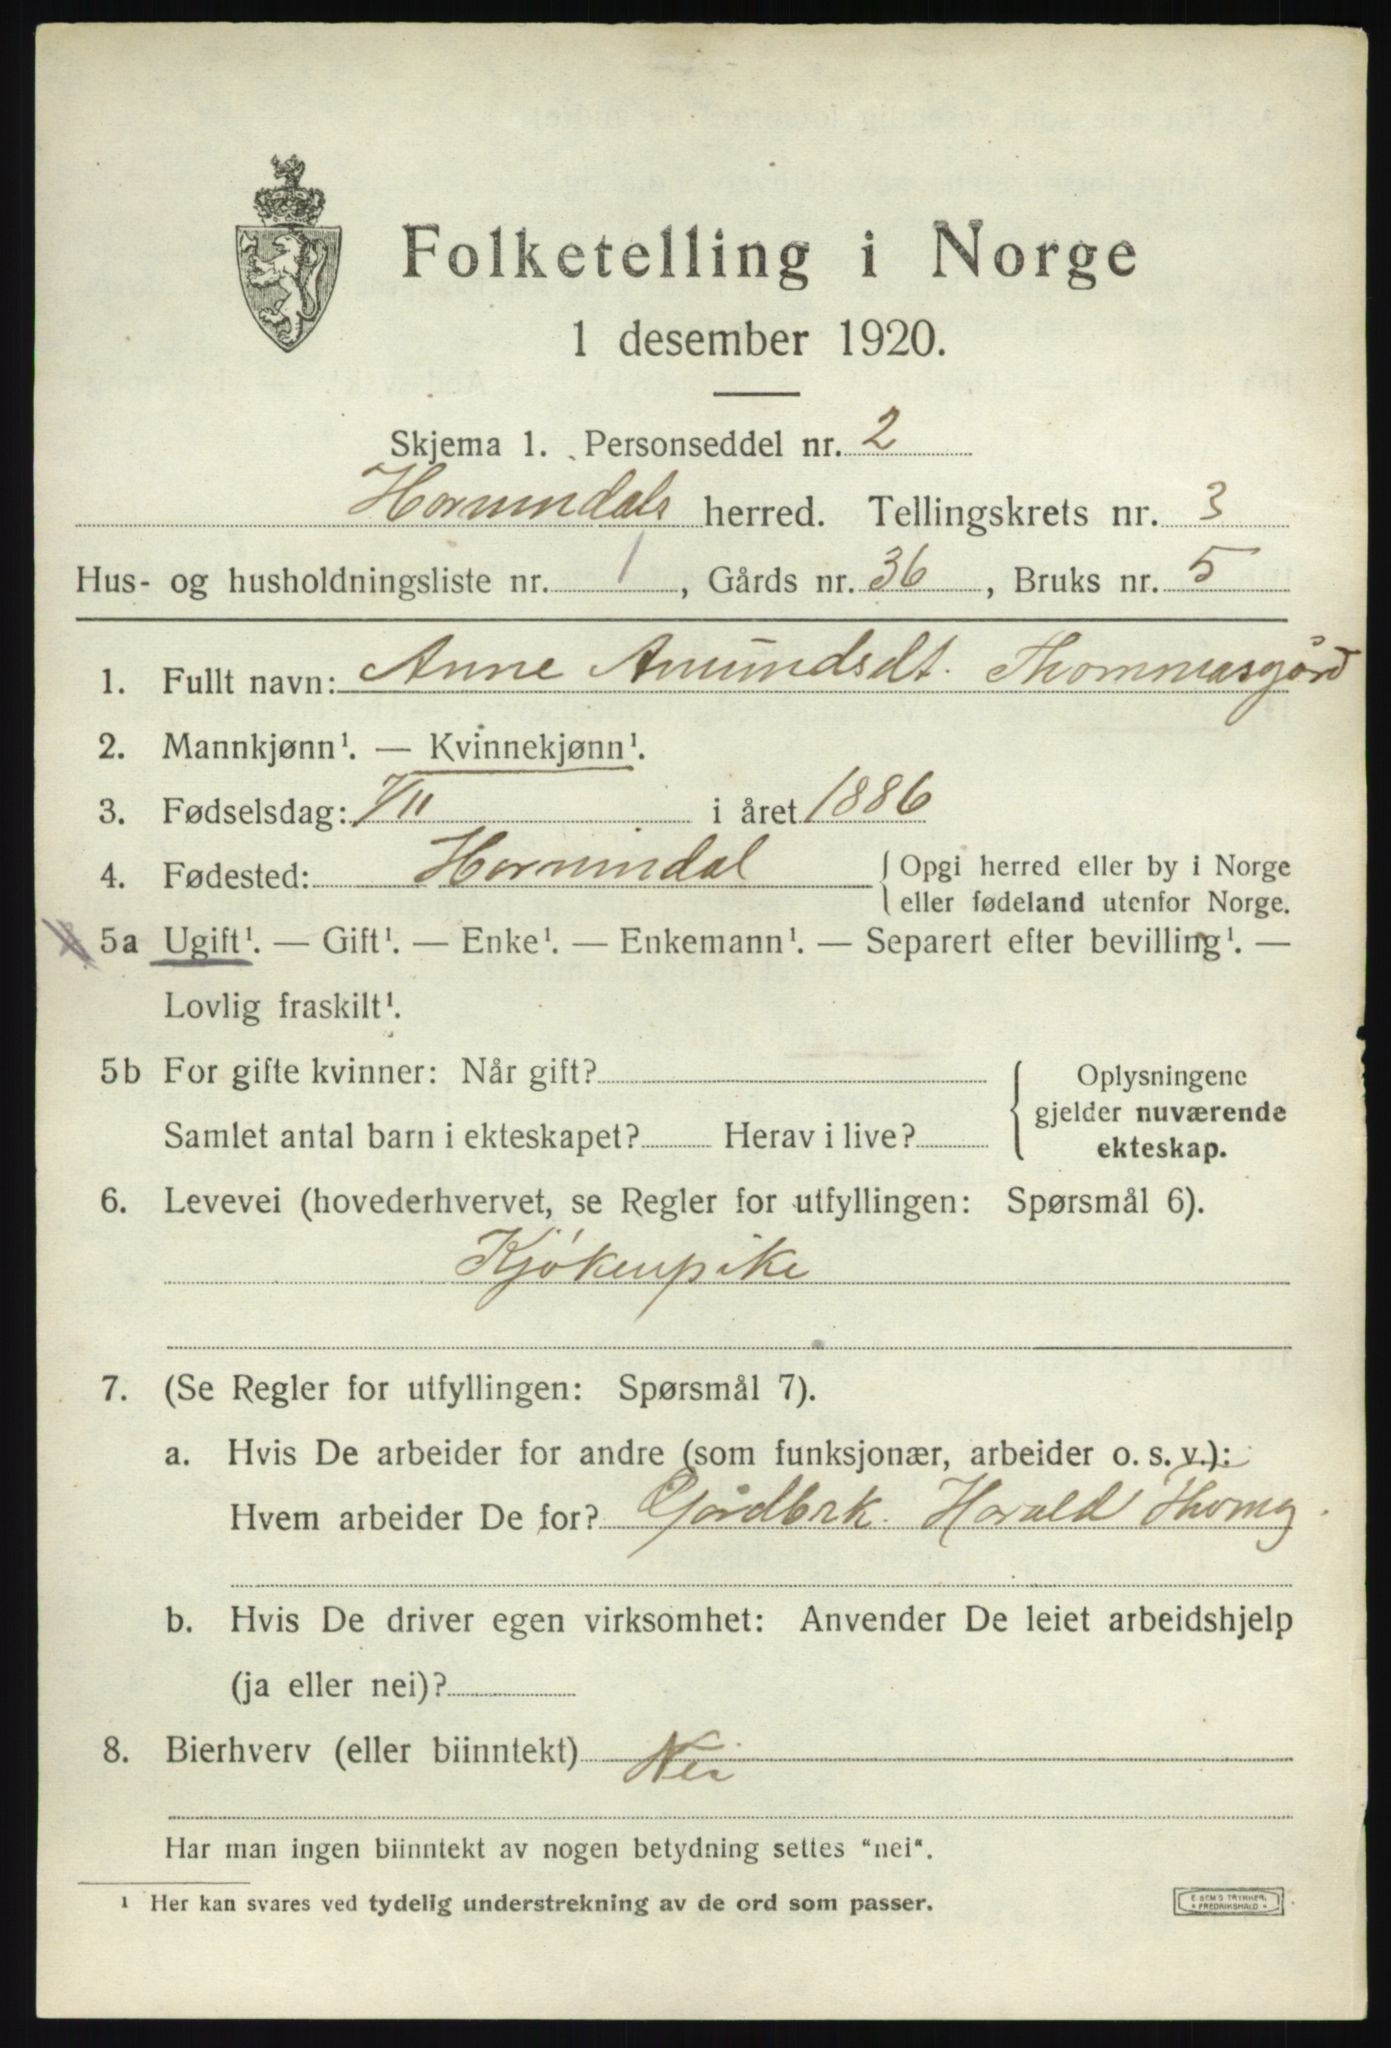 Folketelling i Norge
1 desember 1920.
Skjema 1. Personseddel nr. 2
Hornindals herred. Tellingskrets nr. 3
Hus- og husholdningsliste nr. 1, Gårds nr. 36, Bruks nr. 5
1. Fullt navn: Anne Amundsdt. Thommasgård
2. Mannkjønn¹. — Kvinnekjønn¹.
3. Fødselsdag: 7/11 i året 1886
4. Fødested: Hornindal { Opgi herred eller by i Norge
eller fødeland utenfor Norge.
5a Ugift¹. — Gift¹. — Enke¹. — Enkemann¹. — Separert efter bevilling¹. —
Lovlig fraskilt¹.
5b For gifte kvinner: Når gift? { Oplysningene
gjelder nuværende
Samlet antal barn i ekteskapet? Herav i live?
ekteskap.
6. Levevei (hovederhvervet, se Regler for utfyllingen: Spørsmål 6).
Kjøkenpike
7. (Se Regler for utfyllingen: Spørsmål 7).
a. Hvis De arbeider for andre (som funksjonær, arbeider o. s. v.):
Hvem arbeider De for? Gårdbrk. Harald Thomg.
b. Hvis De driver egen virksomhet: Anvender De leiet arbeidshjelp
(ja eller nei)?
8. Bierhverv (eller biinntekt) Nei
Har man ingen biinntekt av nogen betydning settes "nei".
¹ Her kan svares ved tydelig understrekning av de ord som passer.
E. SEM'S TRYKKERI
* FREDRIKSHALD *